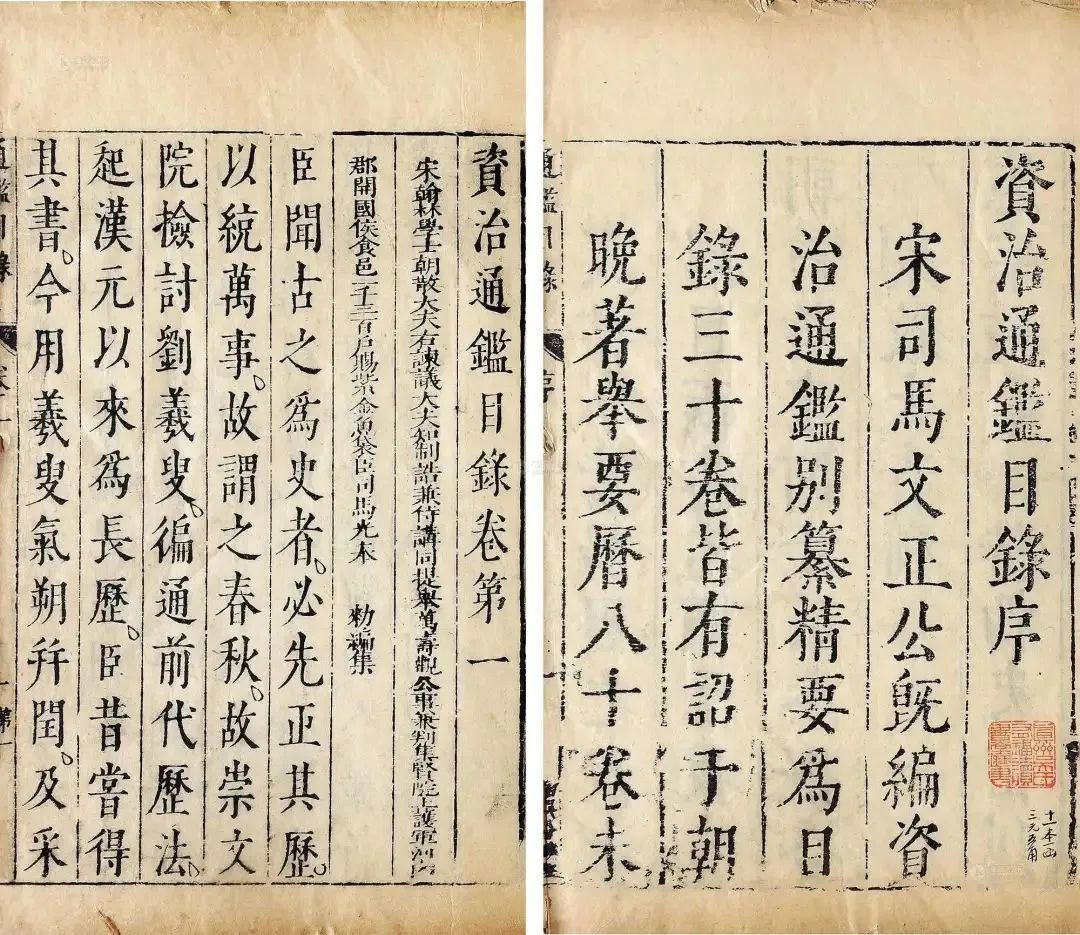 資治通鑑目錄序
宋司馬文正公旣編資
治通鑑別纂精要爲目
錄三十卷皆有詔于朝
晚著舉要曆八十卷未
通鑑目錄
序
資治通鑑目錄卷第一
宋翰林學士朝散大夫右諫議大夫知制誥兼侍講同提舉萬壽觀公事兼判集賢院上護軍河內
郡開國侯食邑一千三百戶賜紫金魚袋臣司馬光奉 勑編集
臣聞古之爲史者。必先正其歷。
以統萬事。故謂之春秋。故崇文
院撿討劉羲叟。徧通前代歷法。
起漢元以來爲長歷。臣昔嘗得
其書。今用羲叟氣朔幷閏。及采
通鑑目錄
卷一
第一